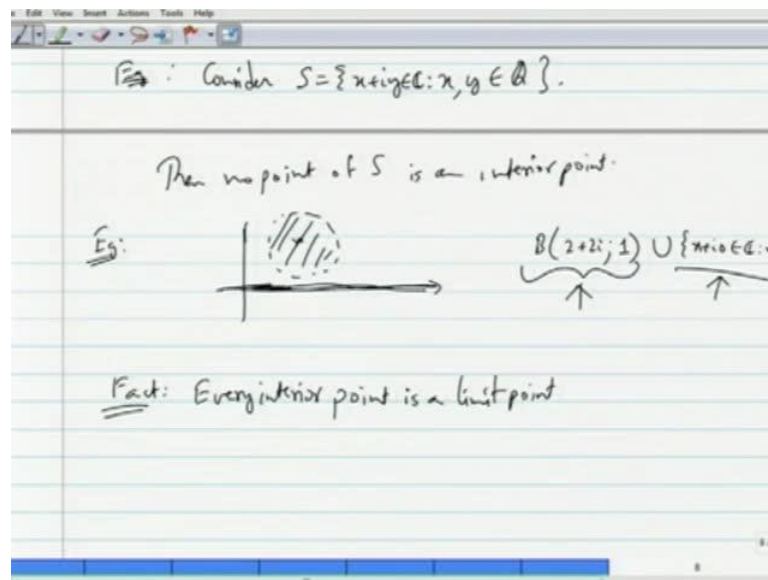 Edit View Insert Actions Tools Help
Eg : Consider S = {x+iy∈ℂ: x, y ∈ ℚ}.
Then no point of S is an interior point.
Eg: B(2+2i; 1) ∪ {x+i0∈ℂ:
Fact: Every interior point is a limit point
8